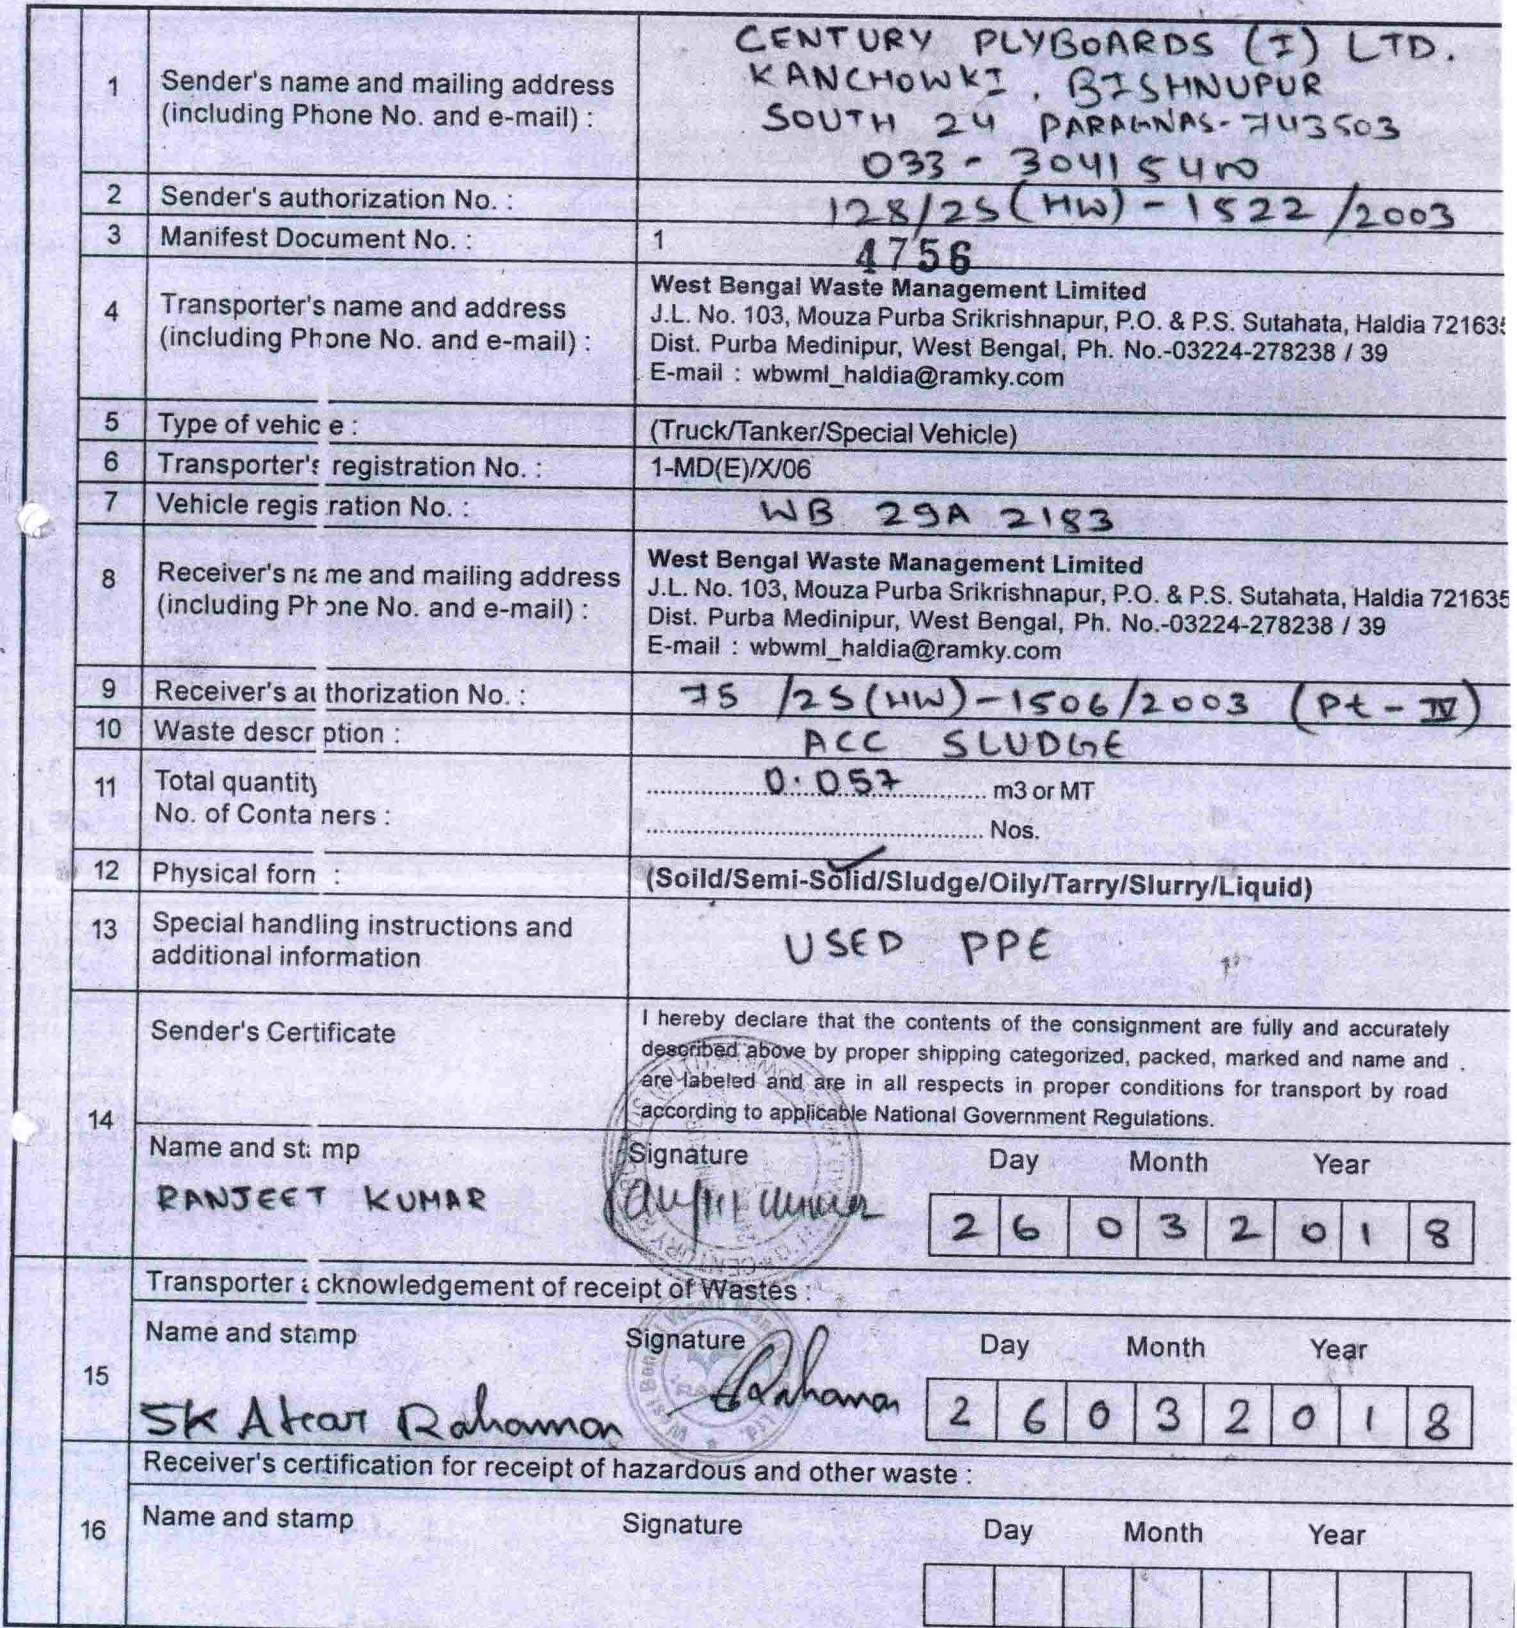 1 Sender's name and mailing address (including Phone No. and e-mail) :
CENTURY PLYBOARDS (I) LTD.
KANCHOWKI, BISHNUPUR
SOUTH 24 PARAGNAS-743503
033-30415400
2 Sender's authorization No. : 128/2S(HW)-1522/2003
3 Manifest Document No. : 1 4756
4 Transporter's name and address (including Phone No. and e-mail) :
West Bengal Waste Management Limited
J.L. No. 103, Mouza Purba Srikrishnapur, P.O. & P.S. Sutahata, Haldia 721635
Dist. Purba Medinipur, West Bengal, Ph. No.-03224-278238 / 39
E-mail : wbwml_haldia@ramky.com
5 Type of vehic e : (Truck/Tanker/Special Vehicle)
6 Transporter's registration No. : 1-MD(E)/X/06
7 Vehicle regis ration No. : WB 29A 2183
8 Receiver's name and mailing address (including Phone No. and e-mail) :
West Bengal Waste Management Limited
J.L. No. 103, Mouza Purba Srikrishnapur, P.O. & P.S. Sutahata, Haldia 721635
Dist. Purba Medinipur, West Bengal, Ph. No.-03224-278238 / 39
E-mail : wbwml_haldia@ramky.com
9 Receiver's authorization No. : 75 /2S(HW)-1506/2003 (Pt-IV)
10 Waste descr ption : ACC SLUDGE
11 Total quantity 0.057 m3 or MT
No. of Conta ners : Nos.
12 Physical form : (Soild/Semi-Solid/Sludge/Oily/Tarry/Slurry/Liquid)
13 Special handling instructions and additional information
USED PPE
14 Sender's Certificate
I hereby declare that the contents of the consignment are fully and accurately
described above by proper shipping categorized, packed, marked and name and
are labeled and are in all respects in proper conditions for transport by road
according to applicable National Government Regulations.
Name and stamp Signature Day Month Year
RANJEET KUMAR 2 6 0 3 2 0 1 8
15 Transporter acknowledgement of receipt of Wastes :
Name and stamp Signature Day Month Year
SK Atcar Rahaman Rahaman 2 6 0 3 2 0 1 8
16 Receiver's certification for receipt of hazardous and other waste :
Name and stamp Signature Day Month Year